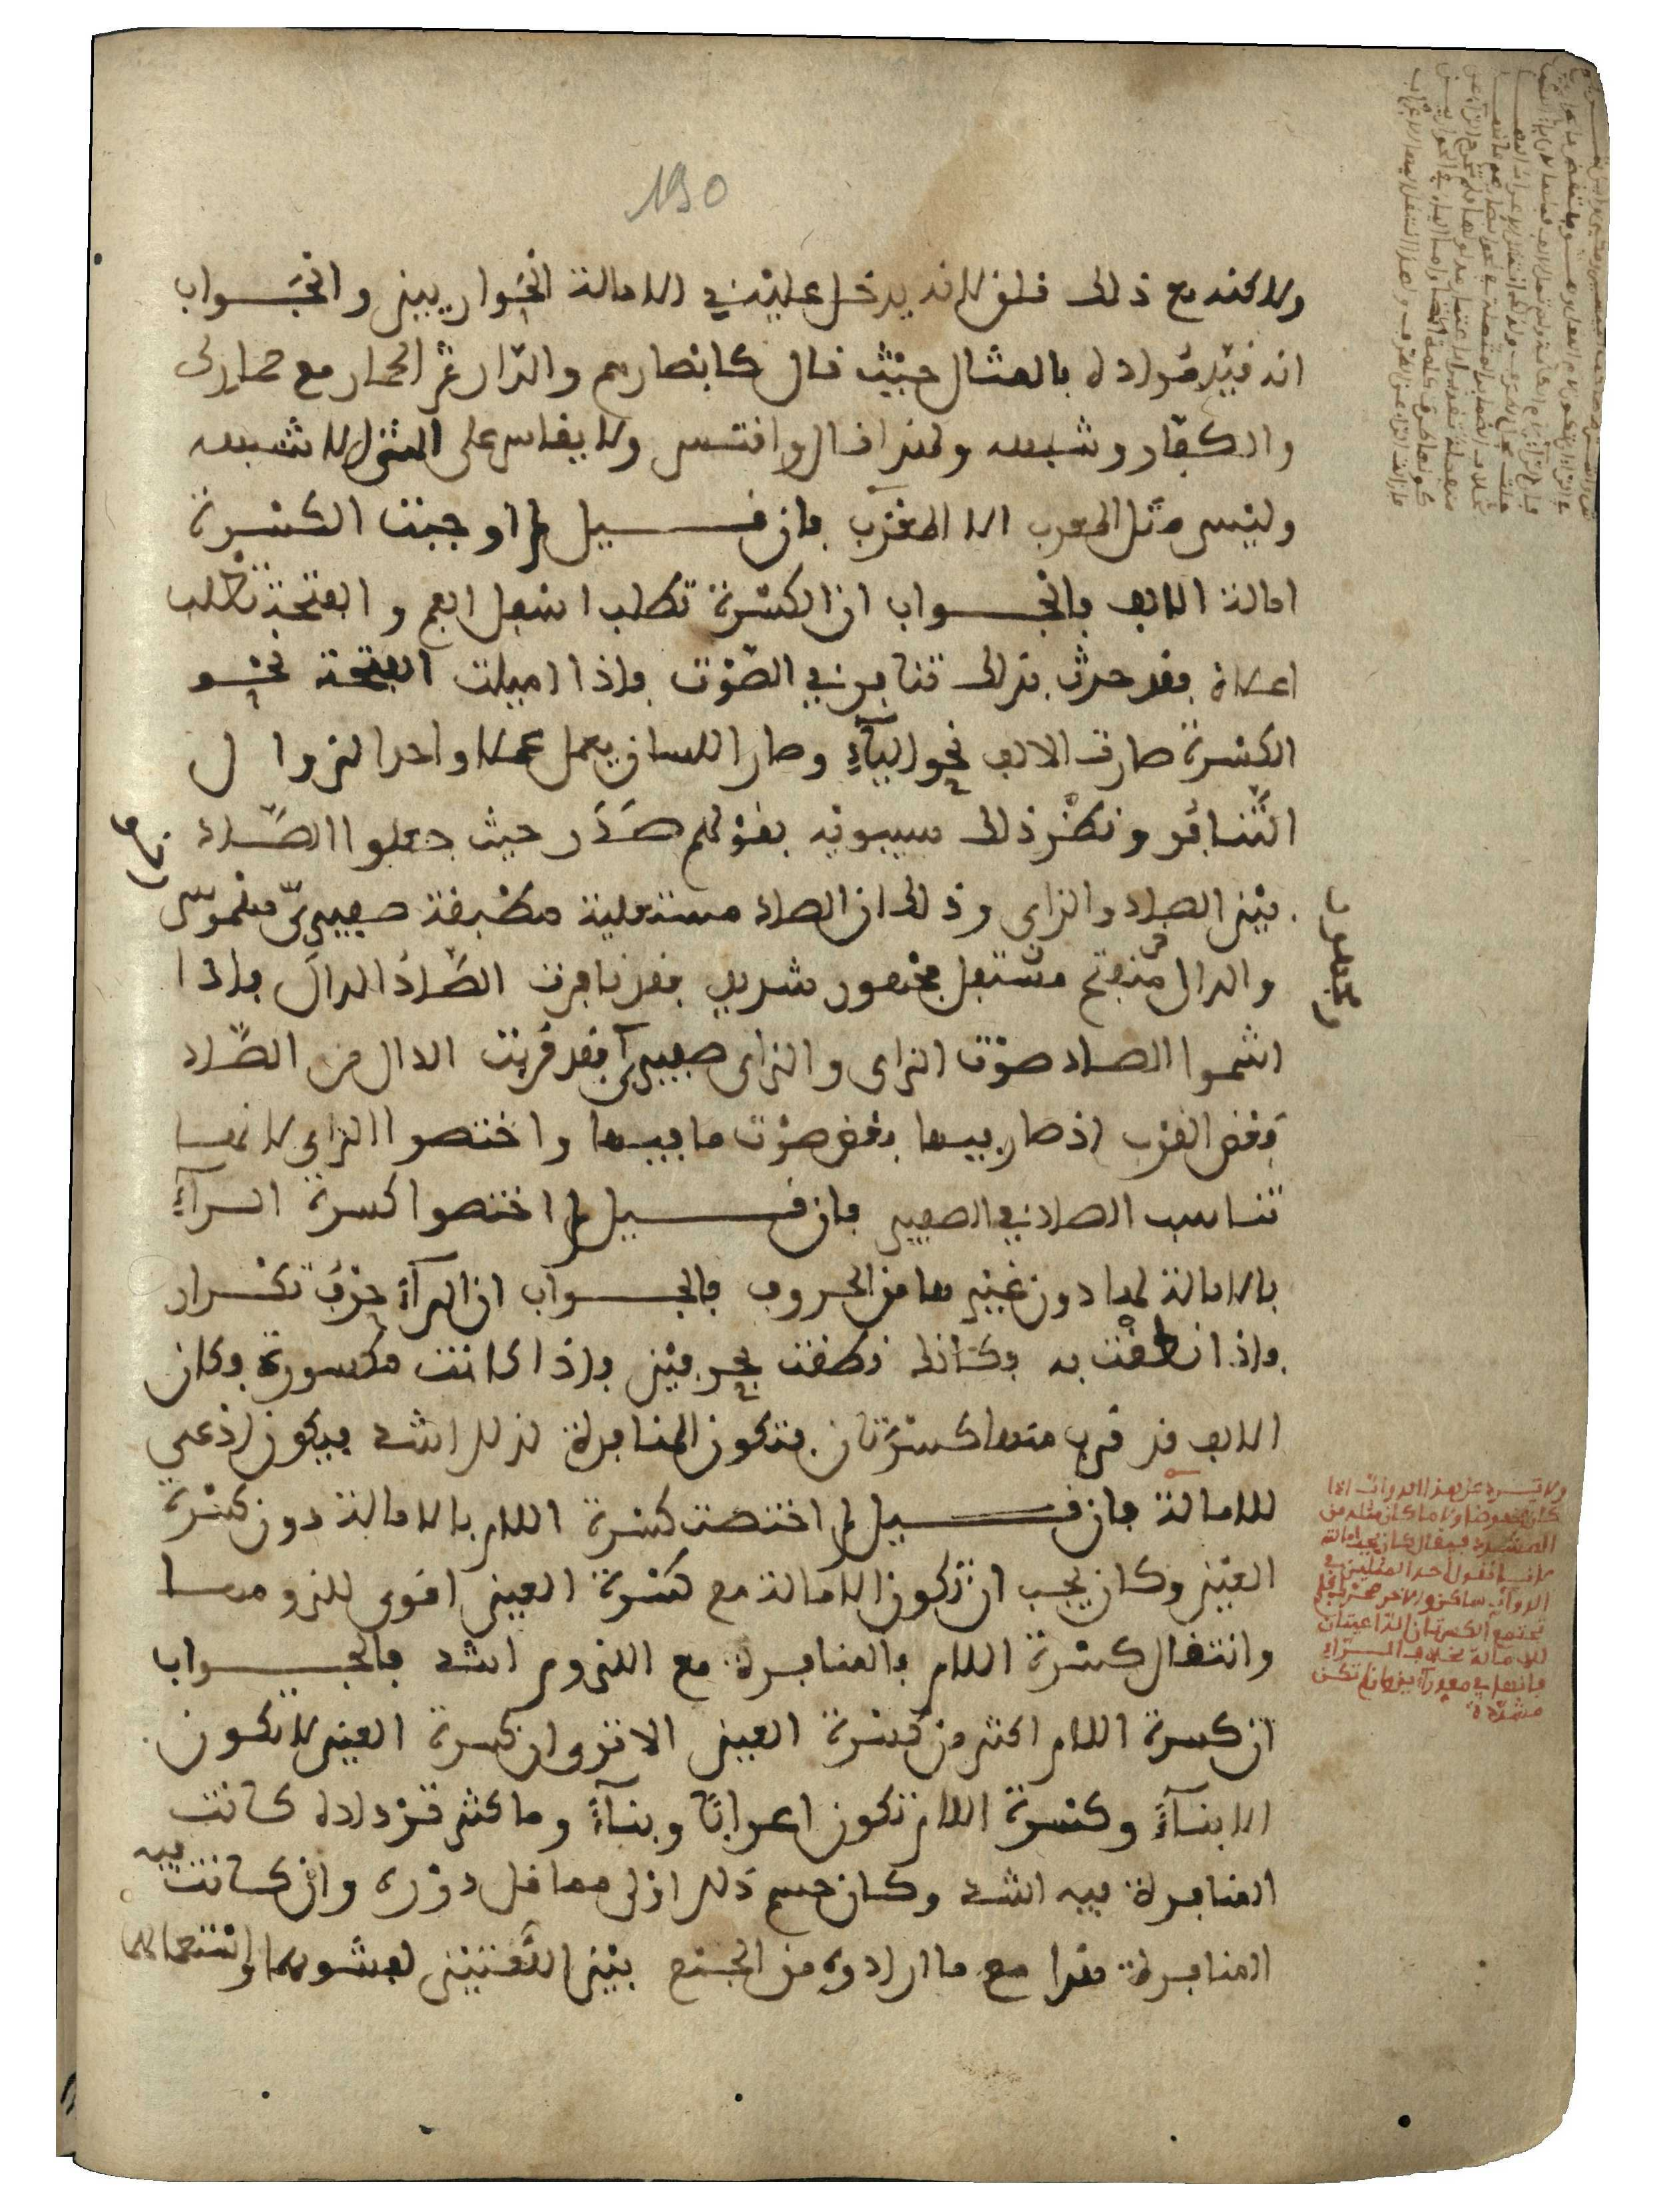 190
ولاكنه مع ذلك قلق لانه يدخل عليه في الامالة الحواريين والجواب
انه قيد مراده بالمثال حيث قال كابصارهم والدار ثم الحمار مع حمارك
والكفار وشبهه ولهذا قال واقتس ولا يقاس على المثل الا شبهه
وليس مثل المعرب الا المعرب فان قيل لم اوجبت الكسرة
امالة الالف فالجواب ان الكسرة تطلب اسفل الفم والفتحة تطلب
اعلاه فقد حدث بذلك تنافر في الصوت فاذا اميلت الفتحة نحو
الكسرة صارت الالف نحو الياء وصار اللسان يعمل عملا واحدا لزوال
التنافر ونظر ذلك سيبويه بقولهم صدر حيث جعلوا الصاد
بين الصاد والزاي وذلك ان الصاد مستعلية مطبقة صفيرى مهموس
والدال منفتح مستفل مجهور شديد فقد نافرت الصاد الدال فاذا
اشموا الصاد صوت الزاي والزاي صفيرى فقد قربت الدال من الصاد
بعض القرب اذ صار بينها بعض صوت ما بينها واختصوا الزاي لانها
تناسب الصاد في الصفير فان قيل لم اختصوا كسرة الراء
بالامالة لها دون غيرها من الحروف فالجواب ان الراء حرف تكرار
فاذا نطقت به فكانك نطقت بحرفين فاذا كانت مكسورة فكان
الالف قد قرب منها كسرتان فتكون المنافرة لذلك اشد فيكون ادعى
للامالة فان قيل لم اختصت كسرة اللام بالامالة دون كسرة
العين وكان يجب ان تكون الامالة مع كسرة العين اقوى للزومها
وانتقال كسرة اللام فالمنافرة مع اللزوم اشد فالجواب
ان كسرة اللام اكثر من كسرة العين الا ترى ان كسرة العين لا تكون
الا بناء وكسرة اللام تكون اعرابا وبناء وما كثر ترداده كانت
المنافرة فيه اشد وكان حسم ذلك اولى مما قل دوره وان كانت فيه
المنافرة هذا مع ما ارادوه من الجمع بين اللغتين لفشوهما واستعمالهما
ولا يرد على هذا الدواب اذا
كان مخفوضا ولا ما كان مثله من
المشدد فيقال كان يجب امالته
لانا نقول احد المثلين في
الدواب ساكن والاخر متحرك فلم
تجتمع الكسرتان الداعيتان
للامالة بخلاف الراء
فانها في مقدار حرفين وان لم تكن
مشددة